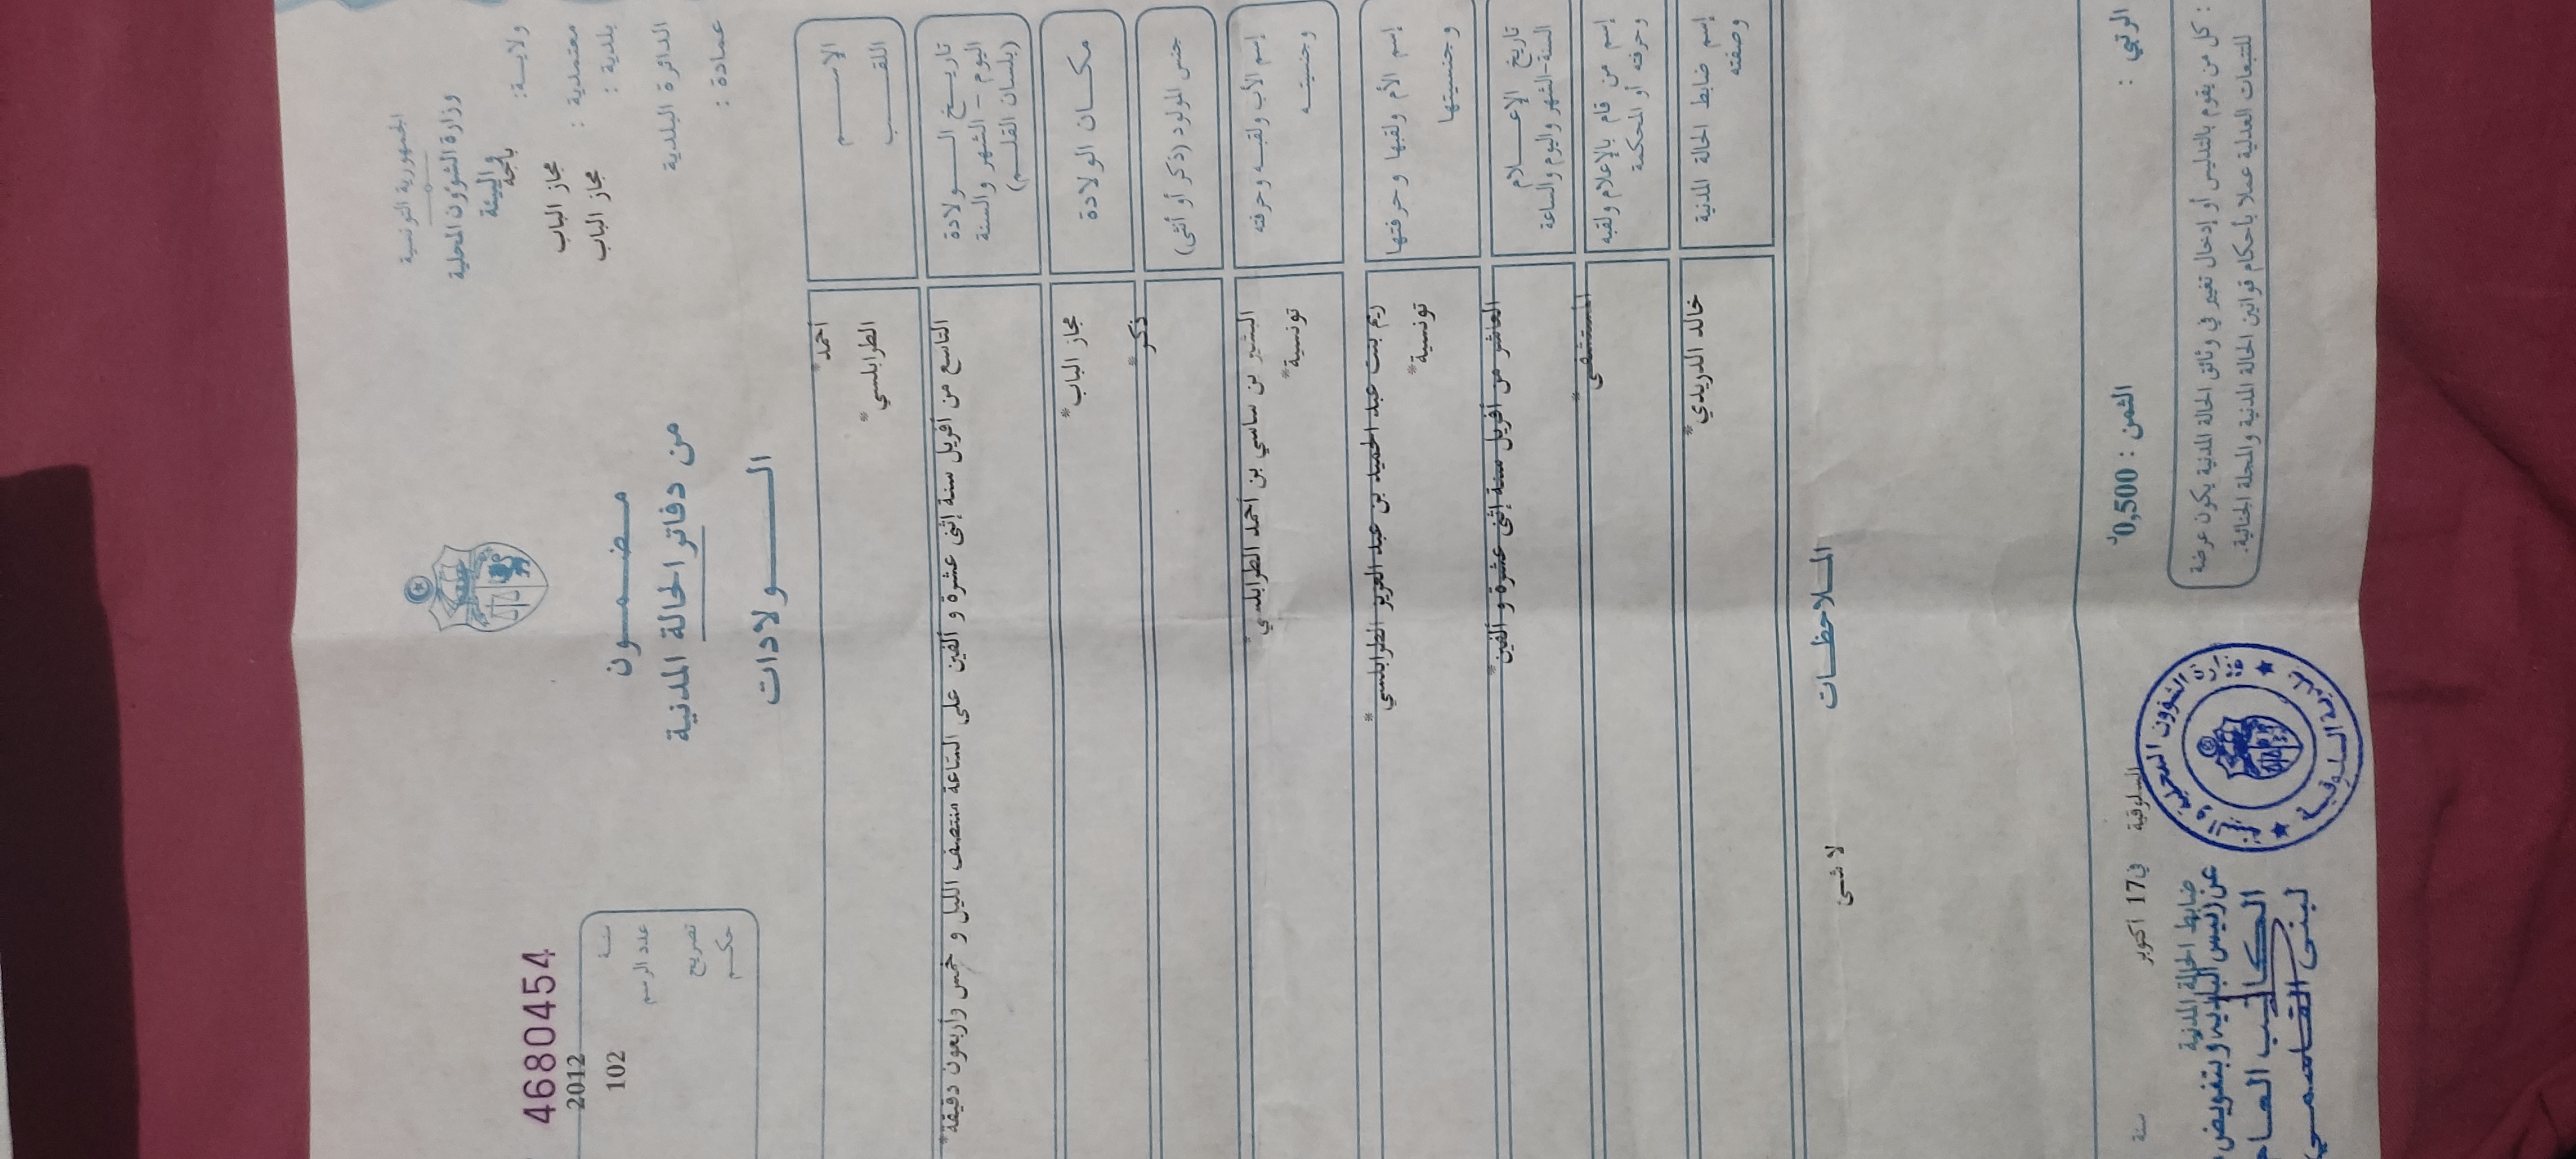 الجمهورية التونسية
وزارة الشؤون المحلية
والبيئة
ولايــة: باجة
معتمدية : مجاز الباب
بلدية : مجاز الباب
الدائرة البلدية
عمادة :
مضمــون
من دفاتر الحالة المدنية
الــولادات
4680454
سنة 2012
عدد الرسم 102
تصريح
حكم
الاســم أحمد*
اللقــب الطرابلسي*
تاريــخ الــولادة
اليوم - الشهر والسنة
(بلسان القلــم)
التاسع من أفريل سنة إثنى عشرة و ألفين على الساعة منتصف الليل و خمس وأربعون دقيقة*
مكــان الولادة مجاز الباب*
جنس المولود (ذكر أو أنثى) ذكر*
إسم الأب ولقبــه وحرفته البشير بن ساسي بن أحمد الطرابلسي*
وجنسيتــه تونسية*
إسم الأم ولقبها وحرفتها ريم بنت عبد الحميد بن عبد العزيز الطرابلسي*
وجنسيتها تونسية*
تاريخ الإعــلام
السنة-الشهر واليوم والساعة
العاشر من أفريل سنة إثنى عشرة و ألفين*
إسم من قام بالإعلام ولقبه
وحرفته أو المحكمة
المستشفى*
إسم ضابط الحالة المدنية
وصفته
خالد الدريدي*
الملاحظــات
لا شئ
الثمن : 0,500د
السلوقية في 17 اكتوبر سنة
ضابط الحالة المدنية
عن رئيس البلدية وبتفويض
الكاتب العا
لبنى القاسمي
: كل من يقوم بالتدليس أو إدخال تغيير في وثائق الحالة المدنية يكون عرضة
للتتبعات العدلية عملا بأحكام قوانين الحالة المدنية والمجلة الجنائية.